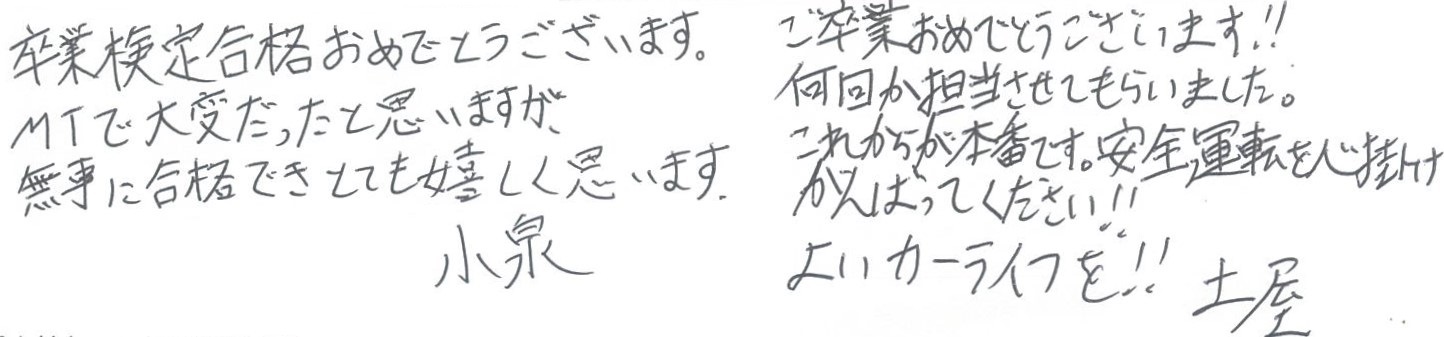 卒業検定合格おめでとうございます。
MTで大変だったと思いますが、
無事に合格できとても嬉しく思います.
小泉
ご卒業おめでとうございます!!
何回か担当させてもらいました。
これからが本番です。安全運転を心掛け
がんばってください!!
よいカーライフを!!
土屋